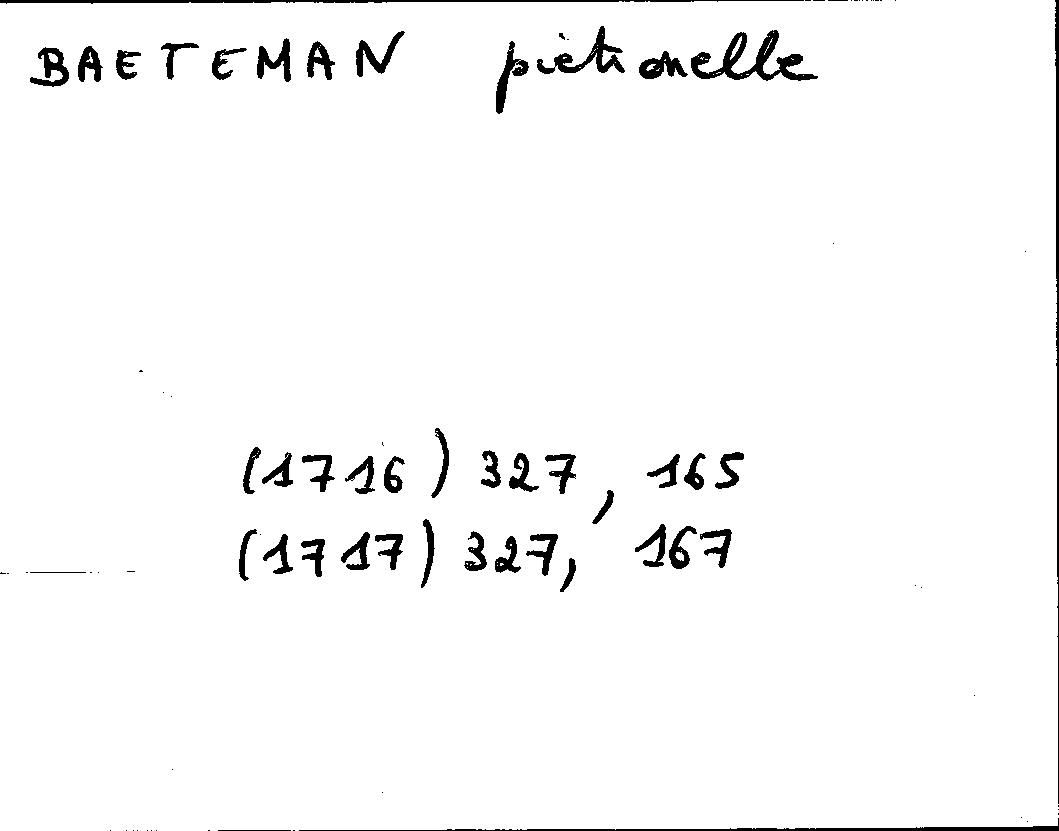 BAETEMAN pietionelle
(1716) 327, 165
(1717) 327, 167